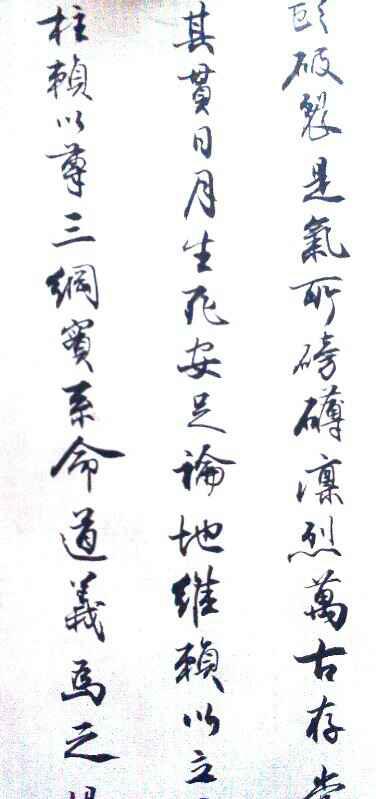 破裂是氣所磅礴凜烈萬古存當
其貫日月生死安足論地維賴以立
柱賴以尊三綱實系命道義為之